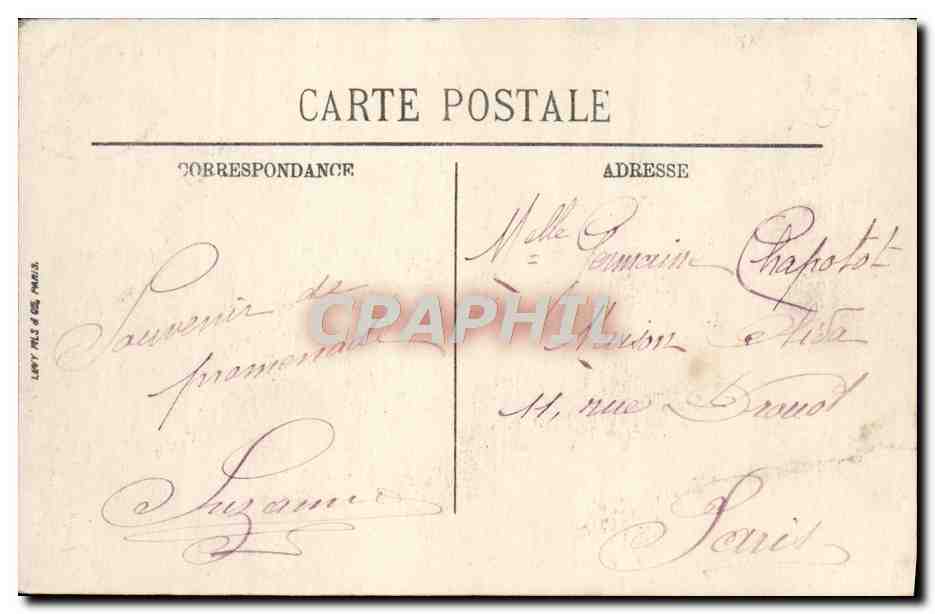 CARTE POSTALE
CORRESPONDANCE
ADRESSE
LEVY FILS & CIE, PARIS.
Souvenir de
promenade
Suzanne
Melle Germaine Chapotot
Maison
11, rue Drouot
Paris
CPAPHIL